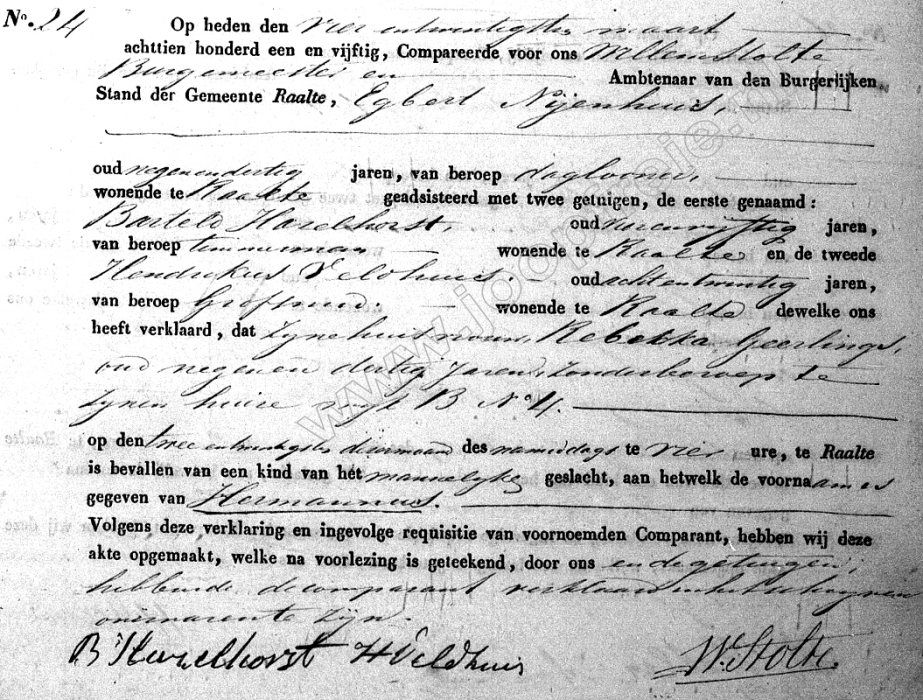 No. 24 Op heden den vier entwintigsten maart
achttien honderd een en vijftig, Compareerde voor ons Willem Stolte
Burgemeester en Ambtenaar van den Burgerlijken
Stand der Gemeente Raalte, Egbert Nijenhuis,
oud negenendertig jaren, van beroep dagloner,
wonende te Raalte geadsisteerd met twee getuigen, de eerste genaamd:
Barteld Hazelhorst, oud vierenvijftig jaren,
van beroep timmerman wonende te Raalte en de tweede
Hendrikus Veldhuis. oud achtentwintig jaren,
van beroep Grofsmid. wonende te Raalte dewelke ons
heeft verklaard, dat zijne huisvrouw, Rebekka Geerlings,
oud negenen dertig Jaren, zonder beroep te
zijnen huize wijk B No 4.
op den twee entwintigsten dezer maand des namiddags te vier ure, te Raalte
is bevallen van een kind van het mannelijke geslacht, aan hetwelk de voornaam is
gegeven van Hermannus.
Volgens deze verklaring en ingevolge requisitie van voornoemden Comparant, hebben wij deze
akte opgemaakt, welke na voorlezing is geteekend, door ons en de getuigen,
hebbende de comparant verklaard in het schrijven
onervaren te zijn.
B Hazelhorst H Veldhuis W. Stolte.